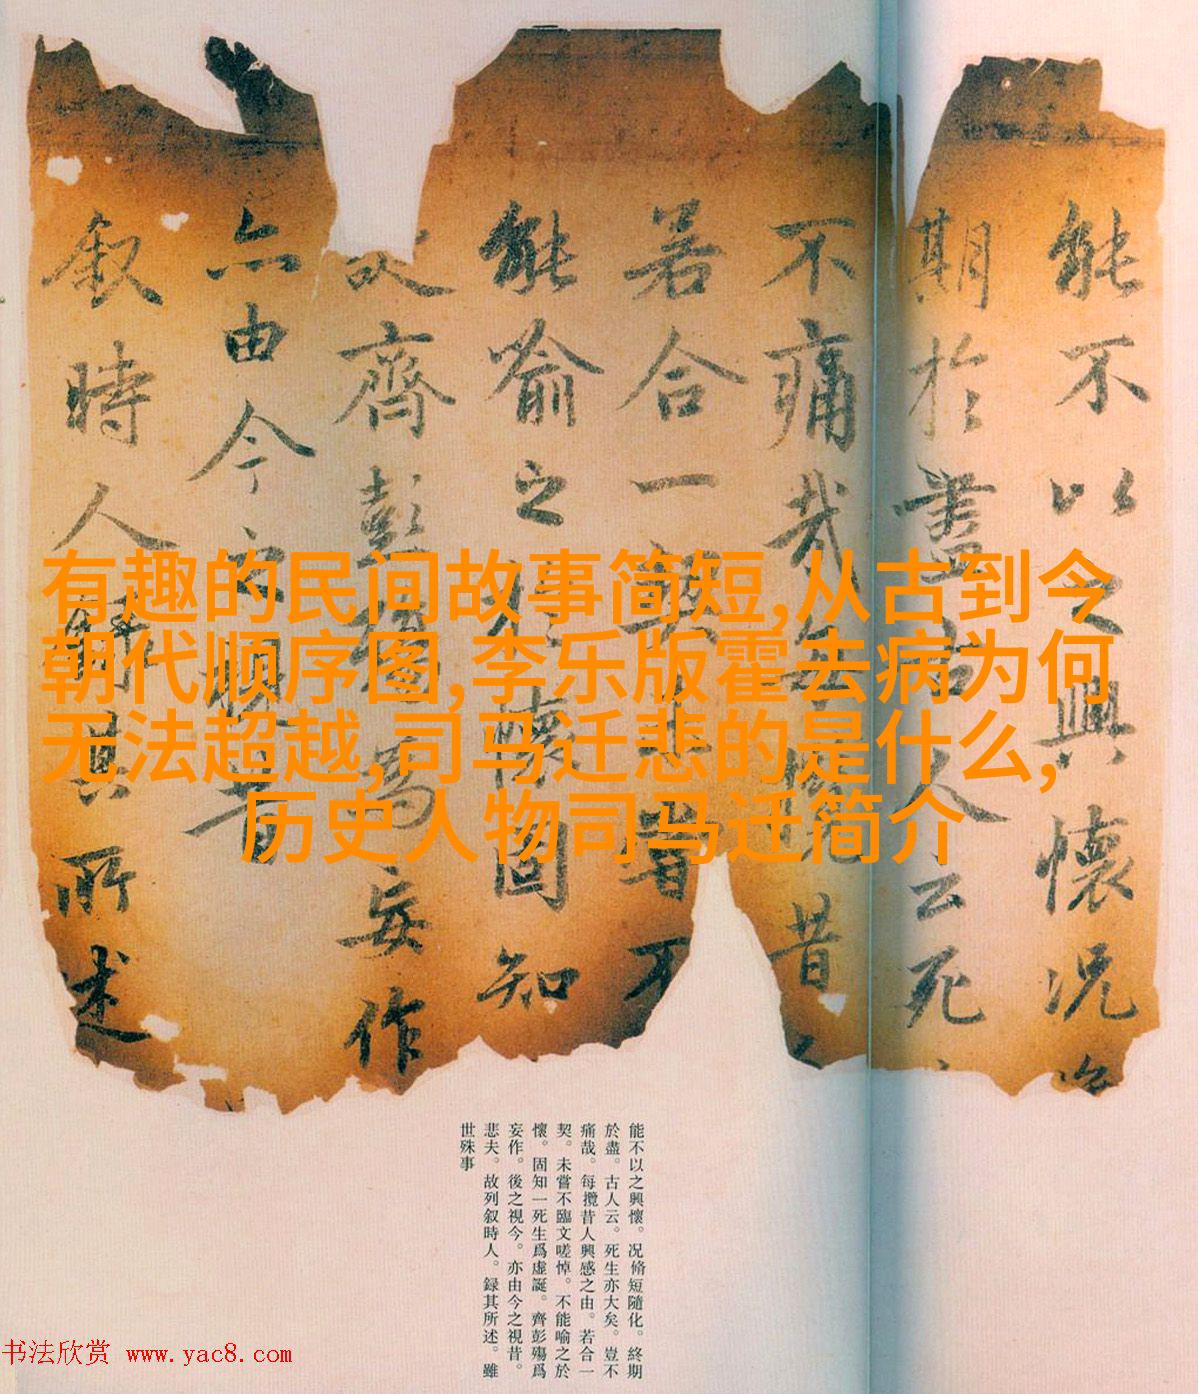 能不以之興懷况
期於盡古人云死
不痛哉每攬昔
若合一契未嘗不
能喻之於懷固知
齊彭殤為妄作
亦由今之視昔
叙時人録其所述
有趣的民间故事简短,从古到今
朝代顺序图,李乐版霍去病为何
无法超越,司马迁悲的是什么,
历史人物司马迁简介
能不以之興懷。况脩短隨化。終期
於盡。古人云。死生亦大矣。豈不
痛哉。每攬昔人興感之由。若合一
契。未嘗不臨文嗟悼。不能喻之於
懷。固知一死生爲虛誕。齊彭殤爲
妄作。後之視今。亦由今之視昔。
悲夫。故列叙時人。録其所述。雖
世殊事
书法欣赏 www.yac8.com